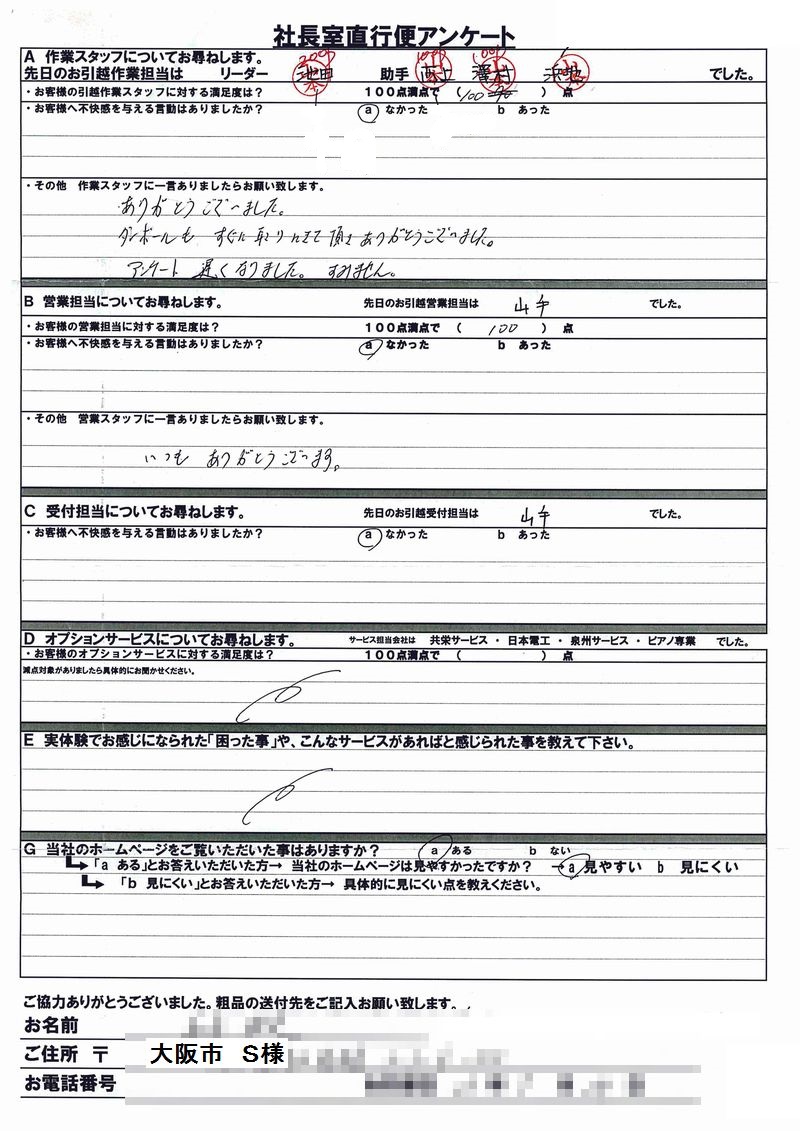 社長室直行便アンケート
A 作業スタッフについてお尋ねします。
200P 100P 100P
先日のお引越作業担当は リーダー 池田 助手 澤村 でした。
・お客様の引越作業スタッフに対する満足度は? 100点満点で ( 100 ) 点
・お客様へ不快感を与える言動はありましたか? a なかった b あった
・その他 作業スタッフに一言ありましたらお願い致します。
ありがとうございました。
ダンボールも すぐに 取りにきて 頂き ありがとうございました。
アンケート 遅くなりました。 すみません。
B 営業担当についてお尋ねします。 先日のお引越営業担当は 山本 でした。
・お客様の営業担当に対する満足度は? 100点満点で ( 100 ) 点
・お客様へ不快感を与える言動はありましたか? a なかった b あった
・その他 営業スタッフに一言ありましたらお願い致します。
いつも ありがとうございます。
C 受付担当についてお尋ねします。 先日のお引越受付担当は 山本 でした。
・お客様へ不快感を与える言動はありましたか? a なかった b あった
D オプションサービスについてお尋ねします。 サービス担当会社は 共栄サービス ・ 日本電工 ・ 泉州サービス ・ ピアノ専業 でした。
・お客様のオプションサービスに対する満足度は? 100点満点で ( ) 点
減点対象がありましたら具体的にお聞かせください。
E 実体験でお感じになられた「困った事」や、こんなサービスがあればと感じられた事を教えて下さい。
G 当社のホームページをご覧いただいた事はありますか? a ある b ない
「a ある」とお答えいただいた方→ 当社のホームページは見やすかったですか? →a 見やすい b 見にくい
「b 見にくい」とお答えいただいた方→ 具体的に見にくい点を教えください。
ご協力ありがとうございました。粗品の送付先をご記入お願い致します。
お名前
ご住所 〒 大阪市 S様
お電話番号